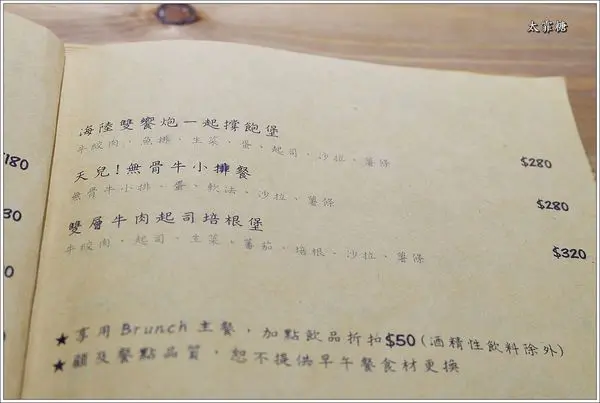 太詐糖
$180
30
0
海陸雙饗炮一起撐飽堡
牛絞肉．魚排．生菜．蛋．起司．沙拉．薯條
$280
天兒!無骨牛小排餐
無骨牛小排．蛋．軟法．沙拉．薯條
$280
雙層牛肉起司培根堡
牛絞肉．起司．生菜．蕃茄．培根．沙拉．薯條
$320
★享用Brunch主餐，加點飲品折扣$50(酒精性飲料除外)
★顧及餐點品質，恕不提供早午餐食材更換